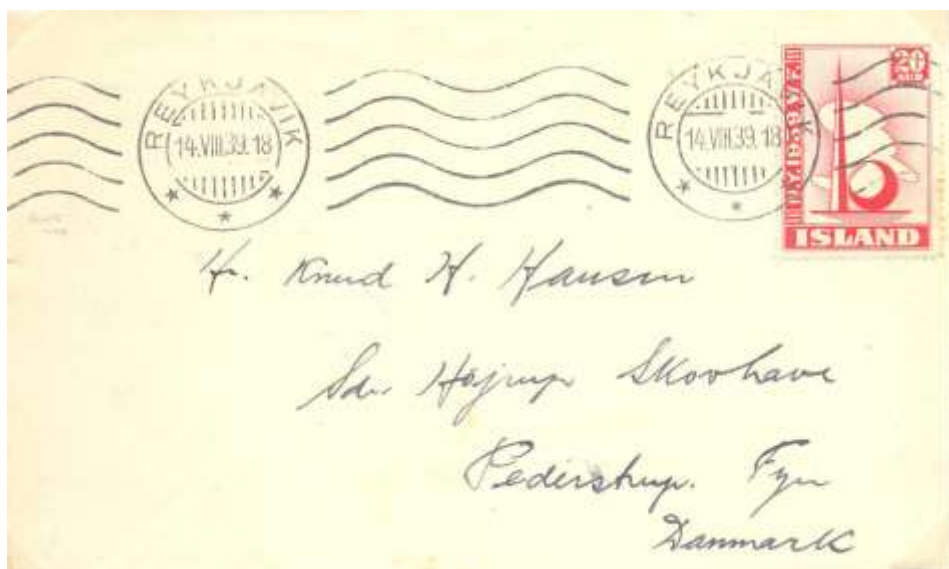 REYKJAVIK
14.VIII.39.18
REYKJAVIK
14.VIII.39.18
20
1939
ISLAND
Hr. Knud H. Hansen
Sdr. Højrup Skovhave
Pederstrup. Fyn
Danmark